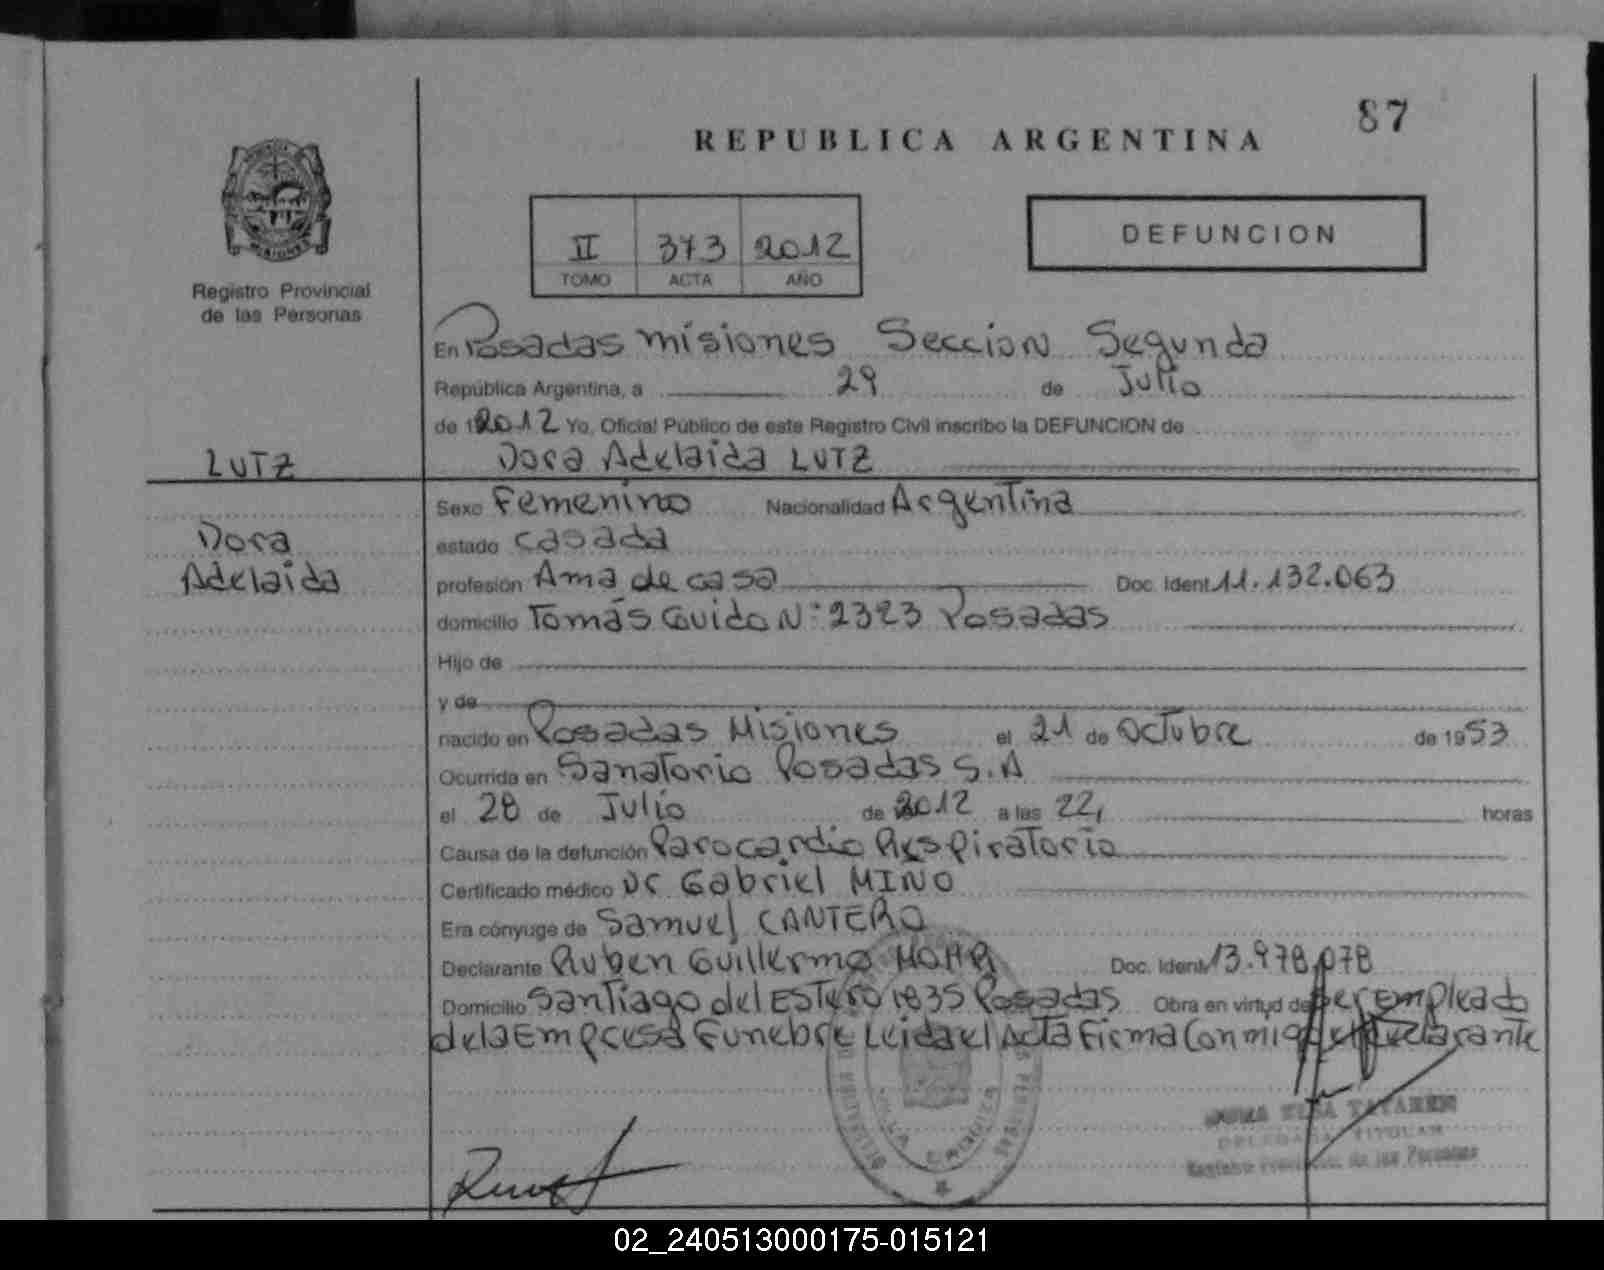 87
REPUBLICA ARGENTINA
DEFUNCION
II 373 2012
TOMO ACTA AÑO
MISIONES
Registro Provincial
de las Personas
En Posadas Misiones Seccion Segunda
República Argentina, a 29 de Julio
de 2012 Yo, Oficial Público de este Registro Civil inscribo la DEFUNCION de
LUTZ
Dora Adelaida LUTZ
Dora
Adelaida
Sexo Femenino Nacionalidad Argentina
estado casada
profesión Ama de casa Doc. Ident. 11.132.063
domicilio Tomás Guido N: 2323 Posadas
Hijo de
y de
nacido en Posadas Misiones el 21 de Octubre de 1953
Ocurrida en Sanatorio Posadas S.A
el 28 de Julio de 2012 a las 22, horas
Causa de la defunción Parocardio Respiratorio
Certificado médico Dr Gabriel MINO
Era cónyuge de Samuel CANTERO
Declarante Ruben Guillermo Doc. Ident. 13.978.078
Domicilio Santiago del Estero 1835 Posadas Obra en virtud de ser Empleado
de la Empresa Funebre Leida el Acta Firma Conmigo el Declarante
DELEGADA TITULAR
Registro Provincial de las Personas
02_240513000175-015121